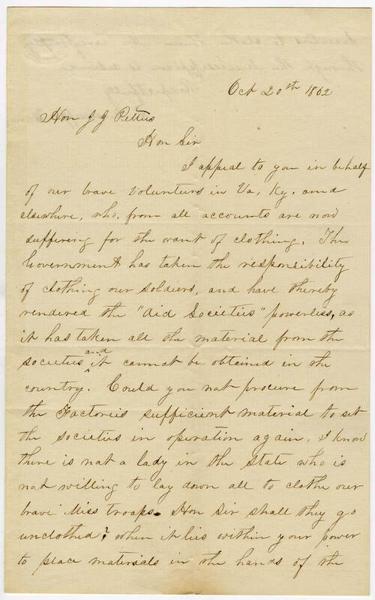 Oct 20th 1862
Hon J J Pettus
Hon Sir
I appeal to you in behalf
of our brave volunteers in Va, Ky. and
elsewhere, who, from all accounts are now
suffering for the want of clothing. The
Government has taken the responsibility
of clothing our soldiers, and have thereby
rendered the "Aid Societies" powerless, as
it has taken all the material from the
societies and it cannot be obtained in the
country. Could you not procure from
the Factories sufficient material to set
the societies in operation again, I know
there is not a lady in the State who is
not willing to lay down all to clothe our
brave Miss troops. Hon Sir shall they go
unclothed? when it lies within your power
to place materials in the hands of the